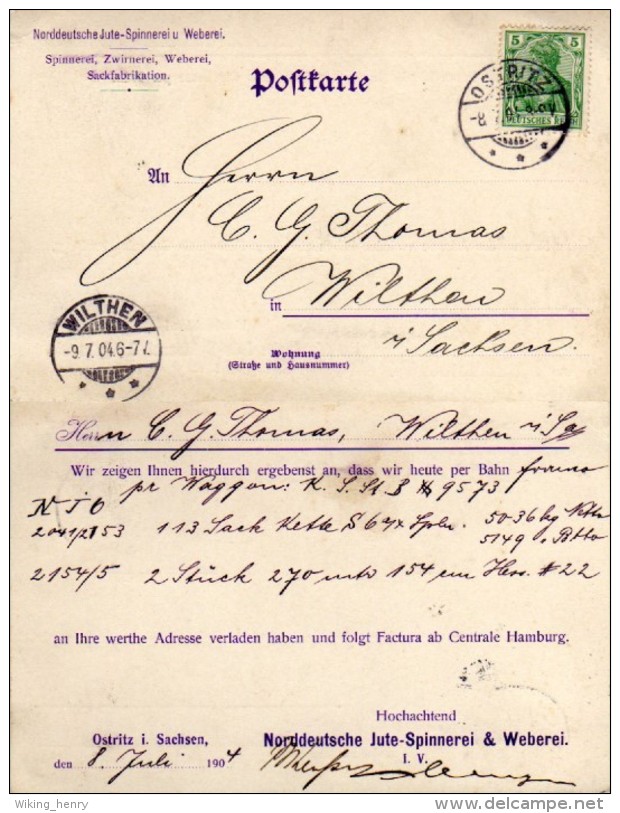 Norddeutsche Jute-Spinnerei u Weberei.
Spinnerei, Zwirnerei, Weberei,
Sackfabrikation.
Postkarte
5 5
DEUTSCHES REICH
OSTRITZ
An Herrn
C. G. Thomas
in Wilthen
i/Sachsen.
Wohnung
(Straße und Hausnummer)
WILTHEN
-9.7.04.6-7
Herrn C. G. Thomas, Wilthen i/Sa
Wir zeigen Ihnen hierdurch ergebenst an, dass wir heute per Bahn franco
pr Waggon: K. S. St. B # 9573
NJO
2041/2153 113 Sack Kette S 50 36 kg Netto
5149 " Btto
2154/5 2 Stück 270 mtr 154 cm Hess. # 22
an Ihre werthe Adresse verladen haben und folgt Factura ab Centrale Hamburg.
Hochachtend
Ostritz i. Sachsen, Norddeutsche Jute-Spinnerei & Weberei.
den 8. Juli 1904 I. V.
Wiking_henry
delcampe.net